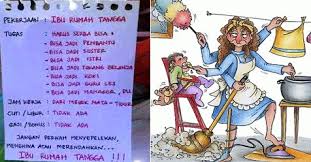 PEKERJAAN : IBU RUMAH TANGGA
TUGAS - HARUS SERBA BISA :
- BISA JADI PEMBANTU
- BISA JADI SUSTER
- BISA JADI ISTRI
- BISA JADI TUKANG BELANJA
- BISA JADI KOKI
- BISA JADI GURU LES
- BISA JADI MANAGER, DLL
JAM KERJA : DARI MELEK MATA - TIDUR
CUTI / LIBUR : TIDAK ADA
GAJI / BONUS : TIDAK ADA
JANGAN PERNAH MENYEPELEKAN,
MENGHINA ATAU MERENDAHKAN...
IBU RUMAH TANGGA !!!